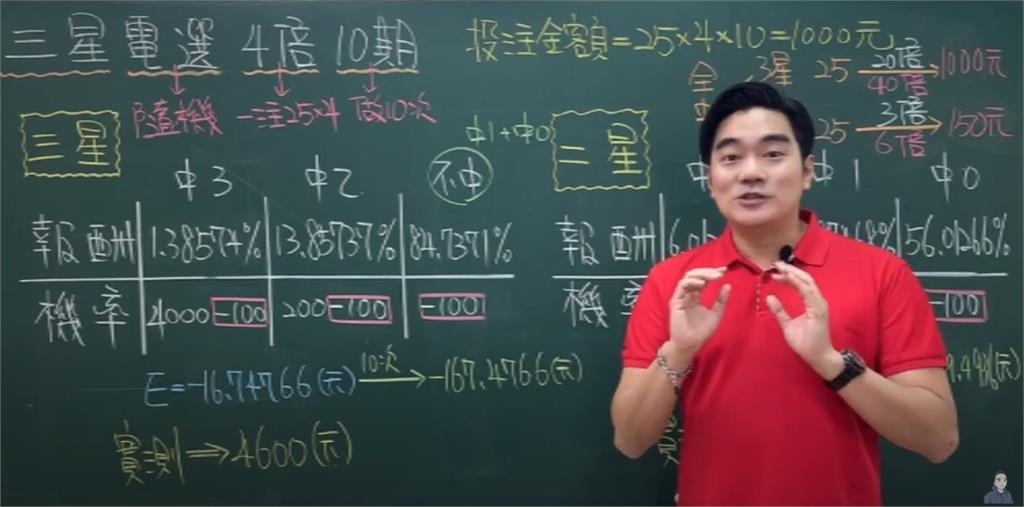 三星 電選 4倍 10期
投注金額=25×4×10=1000元
隨機 一注25×4 做10次
三星 25 20倍 1000元
40倍
25 3倍 150元
6倍
中1+中0
三星
二星
中3 中2 不中
中1 中0
報酬 1.38574% 13.85737% 84.7371%
報酬 56.01266%
機率 4000-100 200-100 -100
機率 -100
E=-16.74766(元) 10次 -167.4766(元)
實測⇒4600(元)